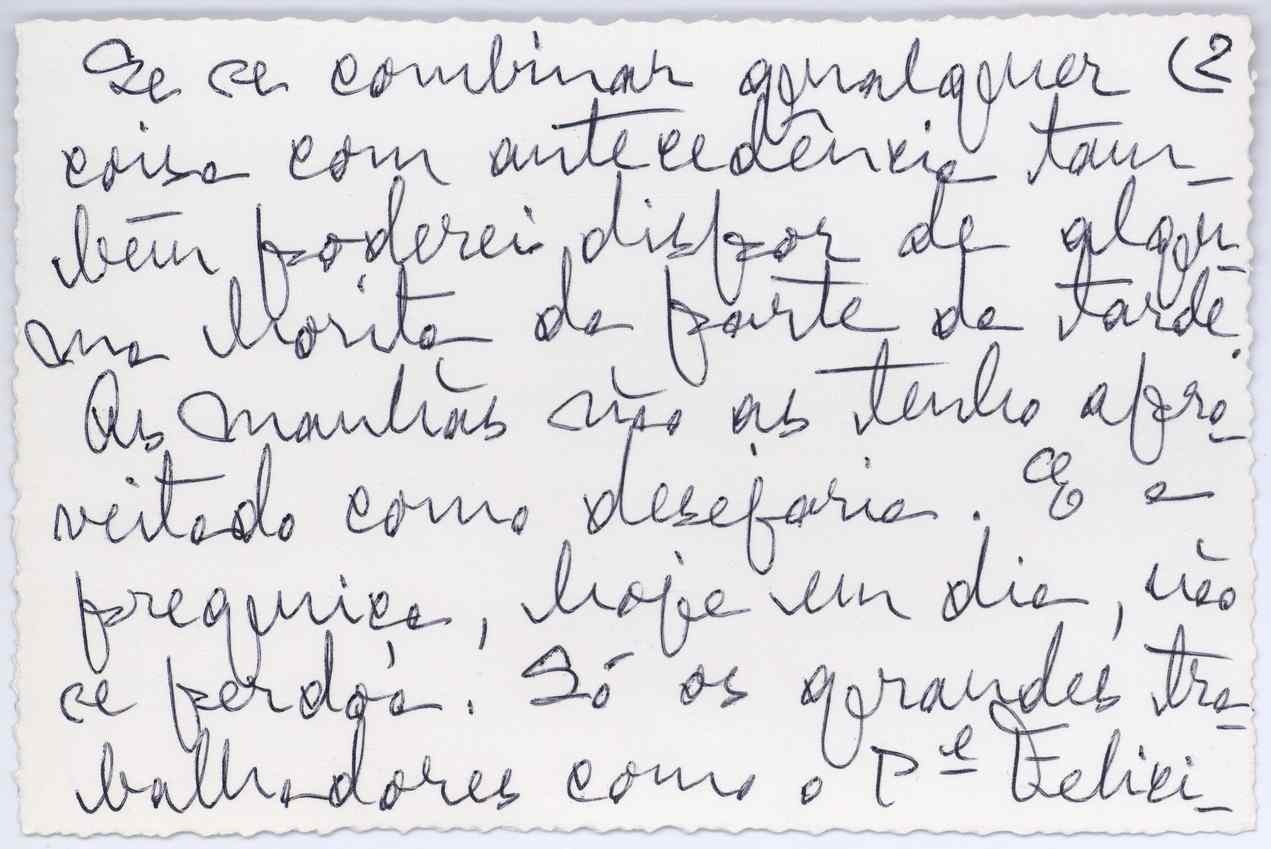 Se se combinar qualquer (2
coisa com antecedência tam-
bém poderei dispor de algu-
ma horita da parte da tarde.
As manhãs não as tenho apro-
veitado como desejaria. E a
preguiça, hoje em dia, não
se perdôa. Só os grandes tra-
balhadores como o Pe Felici-